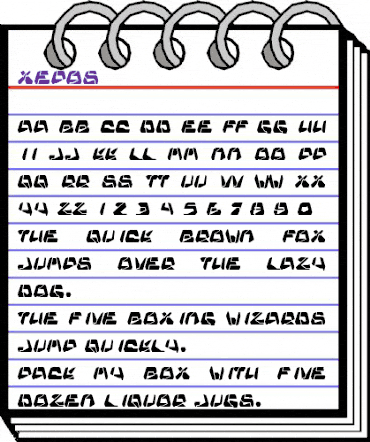 XEPOS
AA BB CC DD EE FF GG HH
II JJ KK LL MM NN OO PP
QQ RR SS TT UU VV WW XX
YY ZZ 1 2 3 4 5 6 7 8 9 0
THE QUICK BROWN FOX
JUMPS OVER THE LAZY
DOG.
THE FIVE BOXING WIZARDS
JUMP QUICKLY.
PACK MY BOX WITH FIVE
DOZEN LIQUOR JUGS.